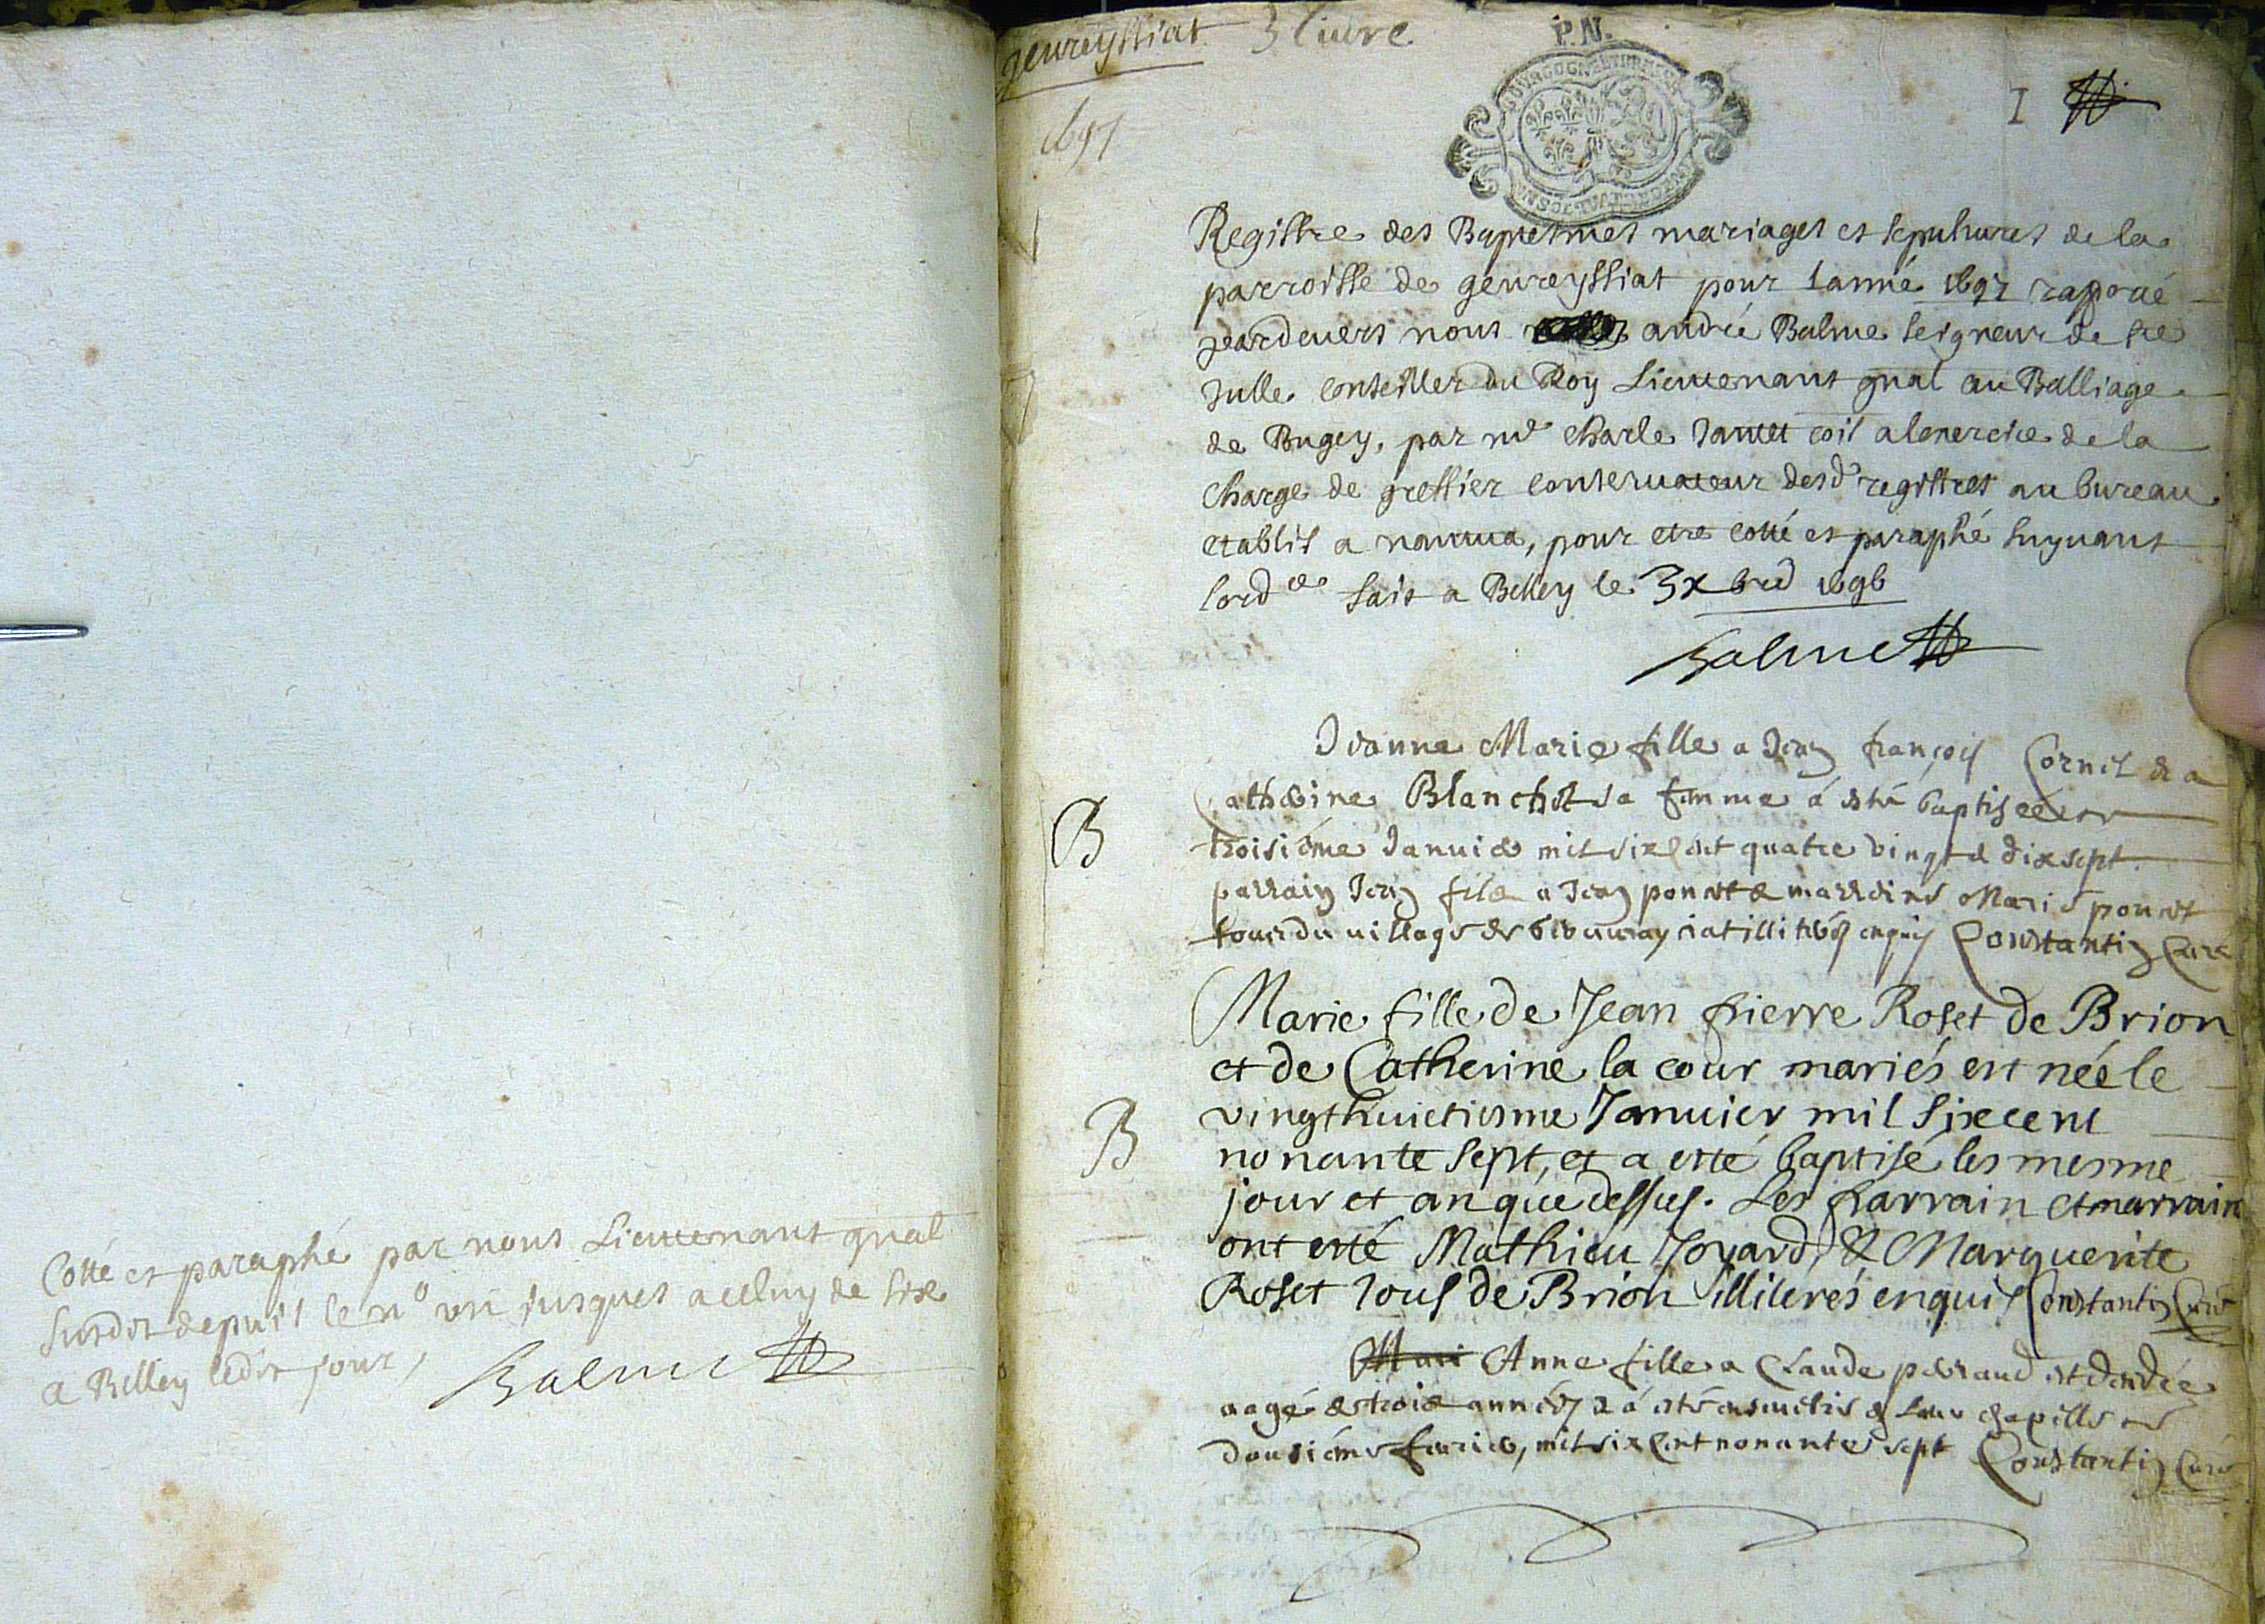 Cotté et paraphé par nous Lieutenant gnal
susdit depuis le n° un jusques a celuy de six
a Belley ledit jour,
Balme
gevreyssiat 3 livre
1697
P.N.
I
Registre des Baptesmes mariages et sepultures de la
parroisse de gevreyssiat pour lanné 1697 raporté
pardevers nous andré Balme seigneur de Ste
Julle conseiller du Roy Lieutenant gnal au Balliage
de Bugey, par me Charle Jantet com a lexercice de la
charge de greffier conservateur desd registres au bureau
establis a nantua, pour etre cotté et paraphé suyvant
lord ce fait a Belley le 3 xbre 1696
Balme
Jeanne Marie fille a Jean françois Cornet & a
Catherine Blanchet sa femme á esté baptisée
B
troisiéme Janvier mil six cent quatre vingt & dix sept
parrain Jean fils a Jean ponset & marreine Marie ponset
tous du village de illiterés enquis Constantin Curé
Marie fille de Jean pierre Roset de Brion
et de Catherine la cour mariés est née le
B
vingthuictiesme Janvier mil six cent
nonante sept, et a esté baptisé les mesme
jour et an que dessus. Les parrain et marrain
ont esté Mathieu Joyard, & Marguerite
Roset tous de Brion illiterés enquis Constantin Curé
Mari Anne fille a Claude perraud est decedée
aagé de trois années & á esté ensevelie
douziéme fevrier, mil six cent nonante sept Constantin Curé